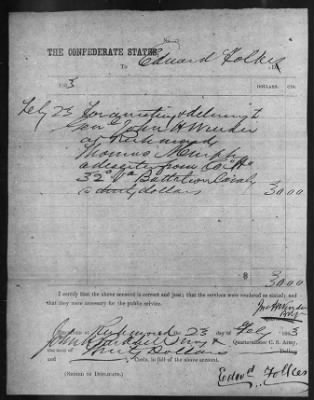 No
THE CONFEDERATE STATES
To Edward Folkes, Dr.
1863
DOLLARS. CTS.
Feby 23 For arresting & delivering to
Gen John H Winder
at Richmond
Thomas Murphy
a deserter from Co "A"
32d Va Battalion Cavaly
thirty dollars 30.00
$ 30.00
I certify that the above account is correct and just; that the services were rendered as stated; and
that they were necessary for the public service.
Jno H Winder
Richmond 23 day of Feby 1863
John Quartermaster C. S. Army,
the sum of Thirty Dollars Dollars
Cents, in full of the above account.
(SIGNED IN DUPLICATE.)
Edwd Folkes